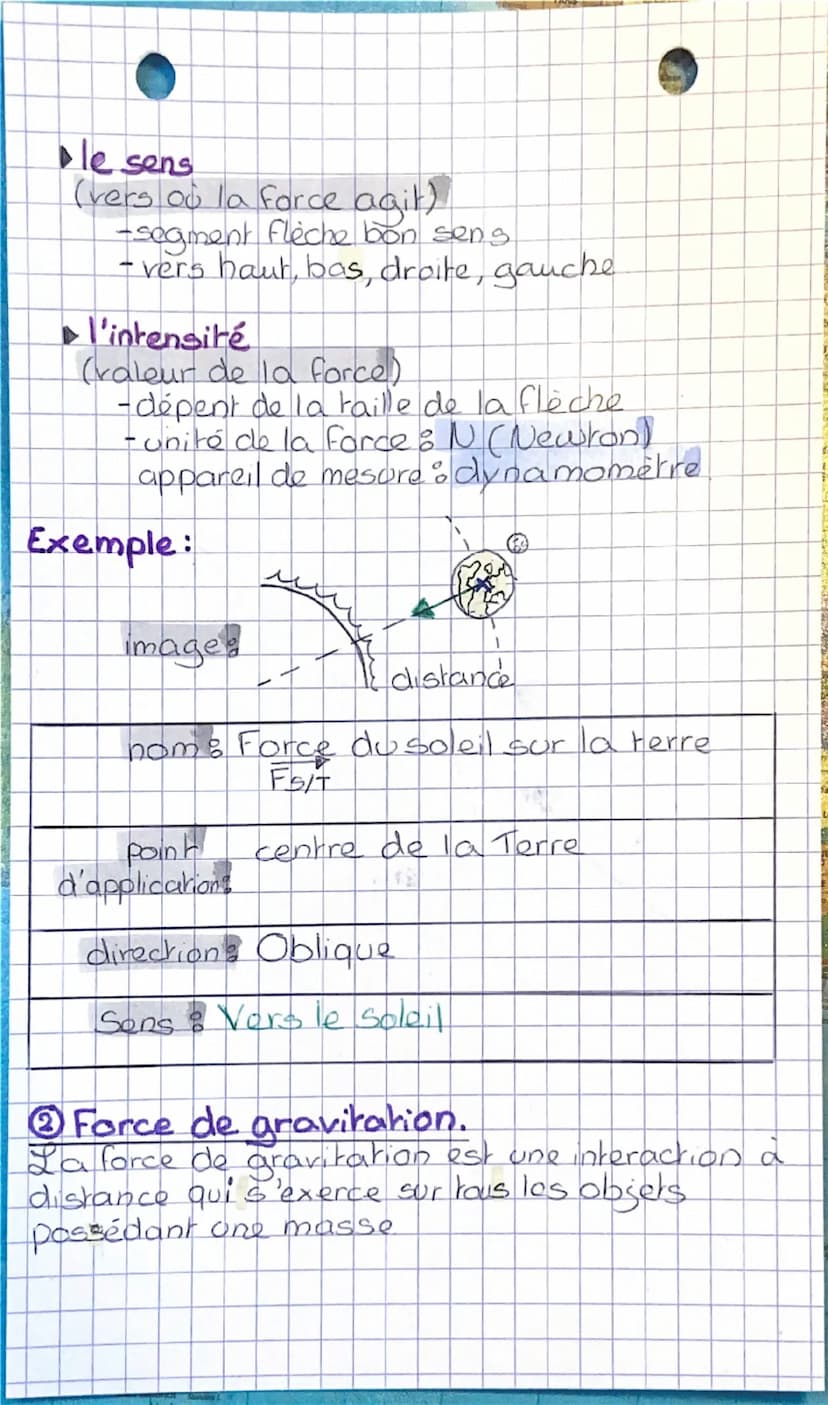 ▶ le sens
(vers où la force agit)
- segment flèche bon sens
- vers haut, bas, droite, gauche
▶ l'intensité
(valeur de la force)
- dépent de la taille de la flèche
- unité de la force : N (Newton)
appareil de mesure : dynamomètre
Exemple :
image :
distance
nom : Force du soleil sur la terre
FS/T
point centre de la Terre
d'application :
direction : Oblique
Sens : Vers le soleil
② Force de gravitation.
La force de gravitation est une interaction à
distance qui s'exerce sur tous les objets
possédant une masse